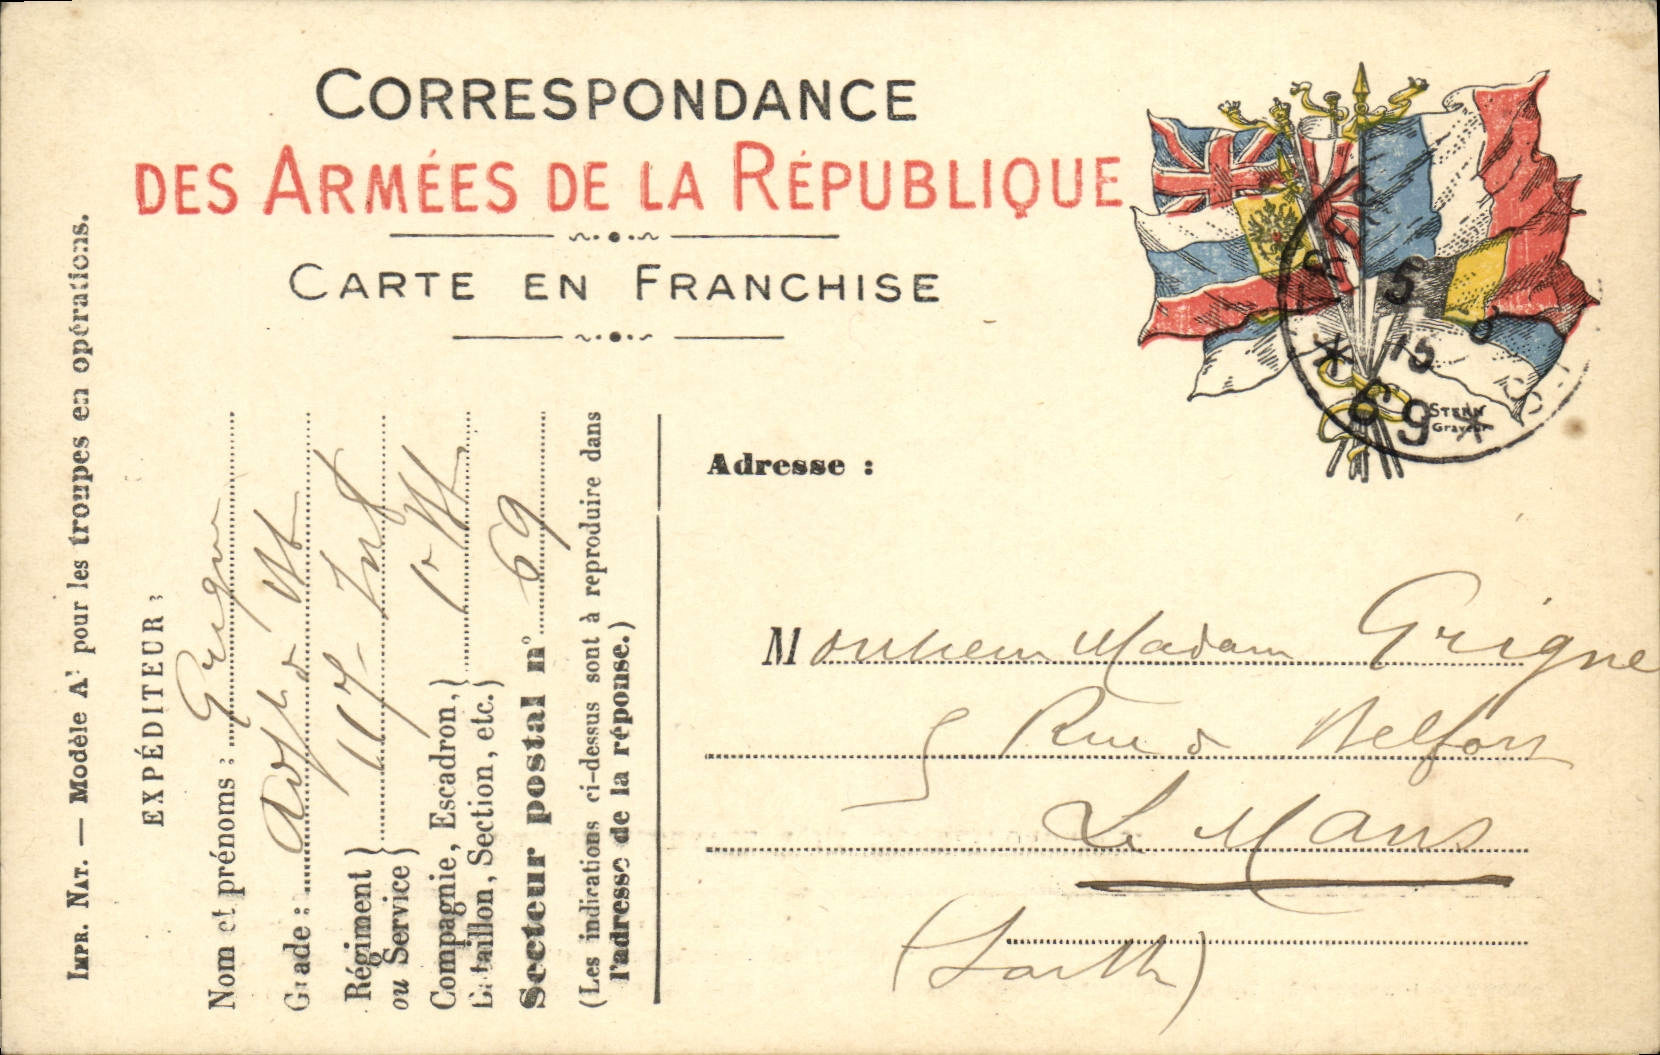 CORRESPONDANCE
DES ARMÉES DE LA RÉPUBLIQUE
CARTE EN FRANCHISE
IMPR. NAT. — Modèle A¹ pour les troupes en opérations.
EXPÉDITEUR :
Nom et prénoms : Grigne
Grade :
Régiment
ou Service } 117 Inf
Compagnie, Escadron,
Bataillon, Section, etc. }
Secteur postal n° 69
(Les indications ci-dessus sont à reproduire dans
l'adresse de la réponse.)
5
8
15
* 69 *
STERN
Graveur
Adresse :
Monsieur Madam Grigne
5 Rue d Belfort
Le Mans
(Sarth)